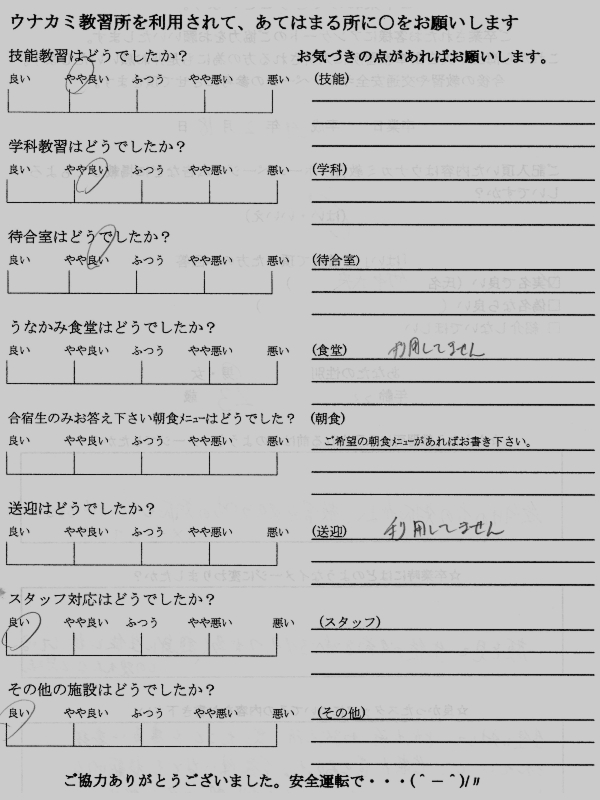 ウナカミ教習所を利用されて、あてはまる所に〇をお願いします
技能教習はどうでしたか？ お気づきの点があればお願いします。
良い やや良い ふつう やや悪い 悪い (技能)
学科教習はどうでしたか？
良い やや良い ふつう やや悪い 悪い (学科)
待合室はどうでしたか？
良い やや良い ふつう やや悪い 悪い (待合室)
うなかみ食堂はどうでしたか？
良い やや良い ふつう やや悪い 悪い (食堂) 利用してません
合宿生のみお答え下さい朝食ﾒﾆｭｰはどうでしたか？ (朝食)
良い やや良い ふつう やや悪い 悪い ご希望の朝食ﾒﾆｭｰがあればお書き下さい。
送迎はどうでしたか？
良い やや良い ふつう やや悪い 悪い (送迎) 利用してません
スタッフ対応はどうでしたか？
良い やや良い ふつう やや悪い 悪い (スタッフ)
その他の施設はどうでしたか？
良い やや良い ふつう やや悪い 悪い (その他)
ご協力ありがとうございました。安全運転で・・・(＾－＾)/〃